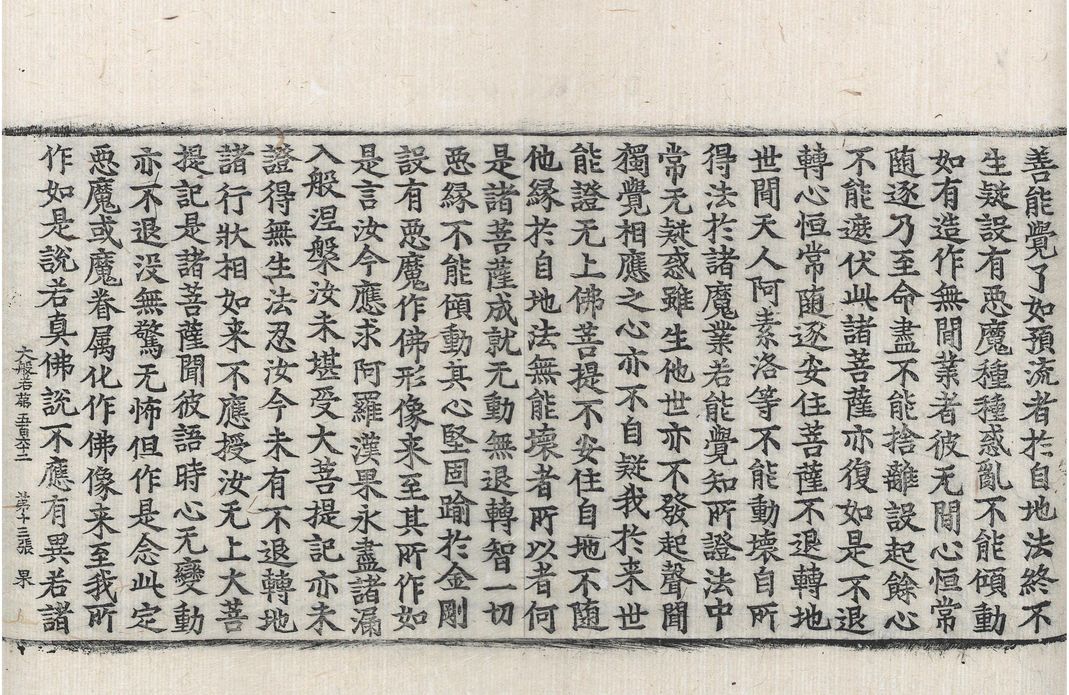 善能覺了如預流者於自地法終不
生疑設有惡魔種種惑亂不能傾動
如有造作無間業者彼无間心恒常
随逐乃至命盡不能捨離設起餘心
不能遮伏此諸菩薩亦復如是不退
轉心恒常随逐安住菩薩不退轉地
世間天人阿素洛等不能動壞自所
得法於諸魔業若能覺知所證法中
常无疑惑雖生他世亦不發起聲聞
獨覺相應之心亦不自疑我於来世
能證无上佛菩提不安住自地不随
他縁於自地法無能壞者所以者何
是諸菩薩成就无動無退轉智一切
惡縁不能傾動其心堅固踰於金剛
設有惡魔作佛形像来至其所作如
是言汝今應求阿羅漢果永盡諸漏
入般涅槃汝未堪受大菩提記亦未
證得無生法忍汝今未有不退轉地
諸行狀相如来不應授汝无上大菩
提記是諸菩薩聞彼語時心无變動
亦不退没無驚无怖但作是念此定
惡魔或魔眷属化作佛像来至我所
作如是說若真佛說不應有異若諸
大般若第五百六十二 第十三張 果